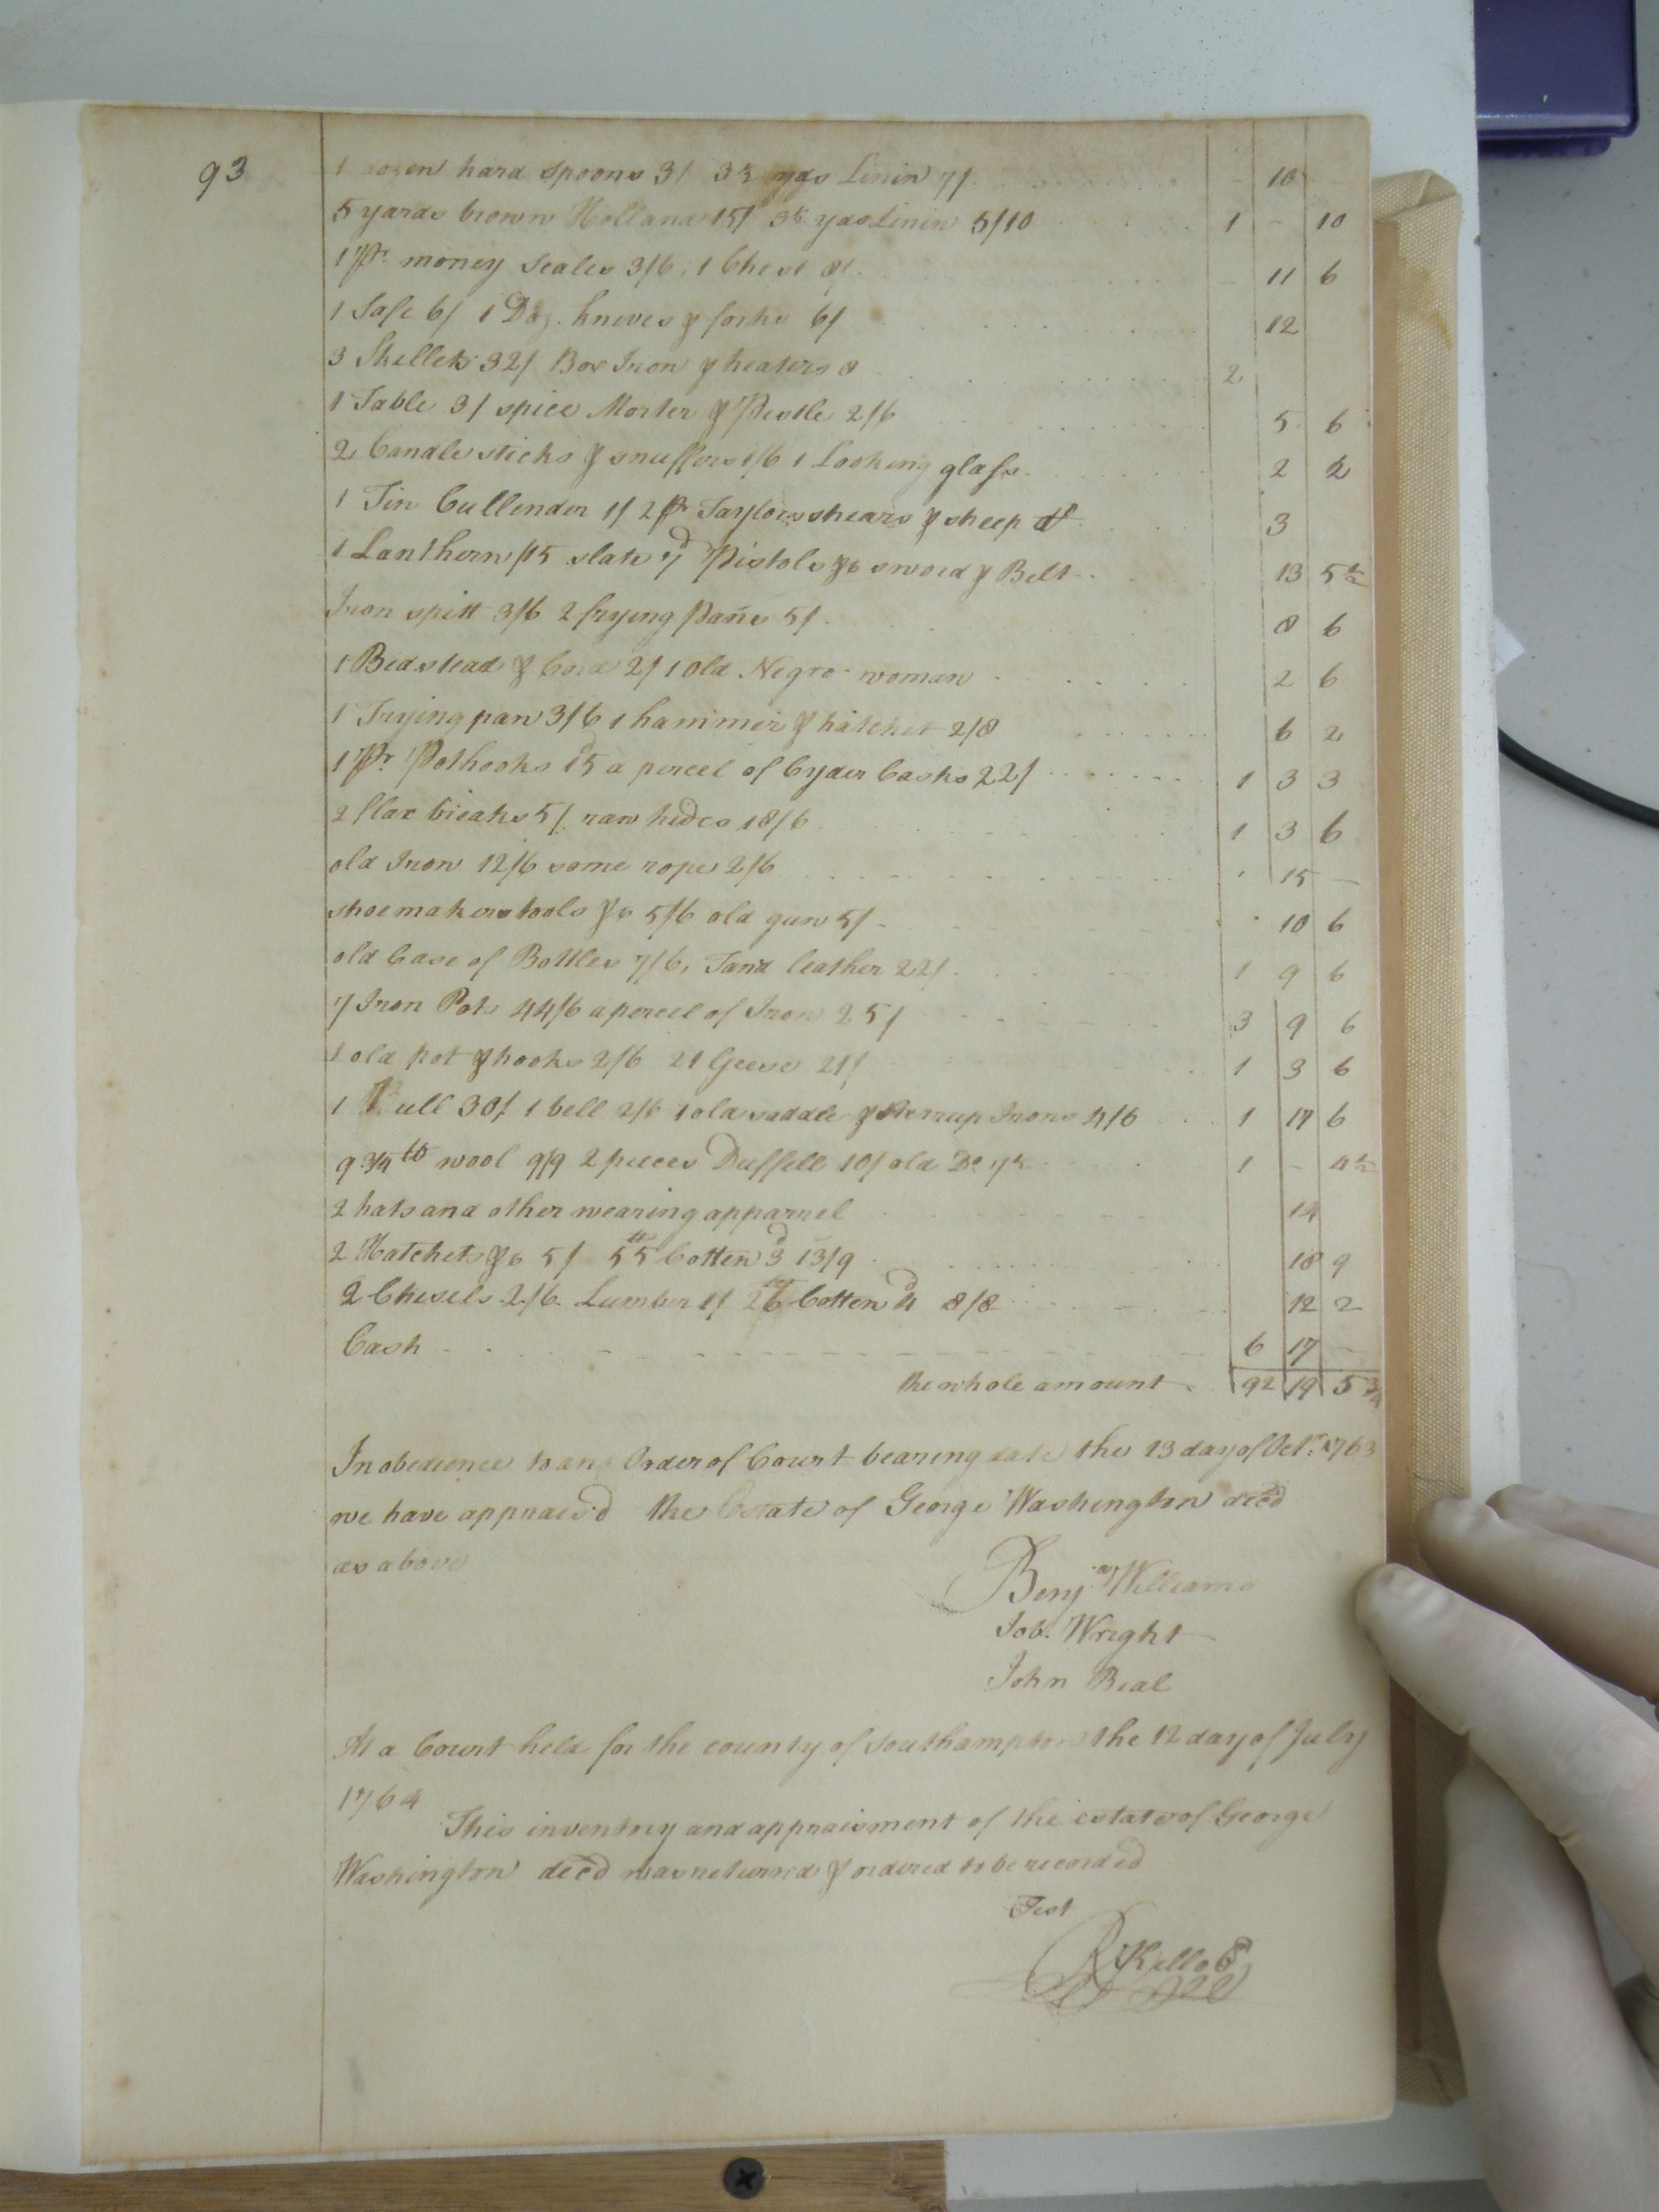 93
1 dozen hard spoons 3/ 3½ yds Linin 7/ - 10 -
5 yards brown Holland 15/ 3½ yds Linin 5/10 1 - 10
1 Pr. money Scales 3/6, 1 Chest 8/ - 11 6
1 Safe 6/ 1 Doz. knives & forks 6/ 12
3 Skillets 32/ Box Iron & heaters 8 2
1 Table 3/ spice Morter & Pestle 2/6 5 6
2 Candlesticks & snuffers 1/6 1 Looking glass 2 2
1 Tin Cullender 1/ 2 pr Taylors shears & sheep do 3
1 Lanthorn /15 slate 7d Pistols &c sword & Belt 13 5½
Iron spitt 3/6 2 frying Pans 5/ 8 6
1 Bedstead & Cord 2/ 1 Old Negro woman 2 6
1 Frying pan 3/6 1 hammer & hatchet 2/8 6 2
1 Pr. Pothooks 15d a percel of Cyder Casks 22/ 1 3 3
2 flax breaks 5/ raw hides 18/6 1 3 6
old Iron 12/6 some rope 2/6 15 -
shoemakers tools &c 5/6 old gun 5/ 10 6
old Case of Bottles 7/6, Tand leather 22/ 1 9 6
7 Iron Pots 44/6 a percel of Iron 25/ 3 9 6
1 old pot & hooks 2/6 21 Geese 21/ 1 3 6
1 Bull 30/ 1 bell 2/6 1 old saddle & Sterrup Irons 4/6 1 17 6
9 3/4 lb wool 9/9 2 pieces Duffell 10/ old Do 7½ 1 - 4½
2 hats and other wearing apparrel 14
2 Hatchets &c 5/ 55 lb Cotten 3d 13/9 18 9
2 Chesels 2/6 Lumber 1/ 26 lb Cotten 4d 8/8 12 2
Cash 6 17 -
the whole amount 92 19 5 3/4
In obedience to an Order of Court bearing date the 13 day of Octr. 1763
we have apprais'd the Estate of George Washington dec'd
as above
Benjn Williams
Job. Wright
John Beal
At a Court held for the county of Southampton the 12 day of July
1764
This inventory and appraisment of the estate of George
Washington dec'd was returned & ordered to be recorded
Test
R Kello C